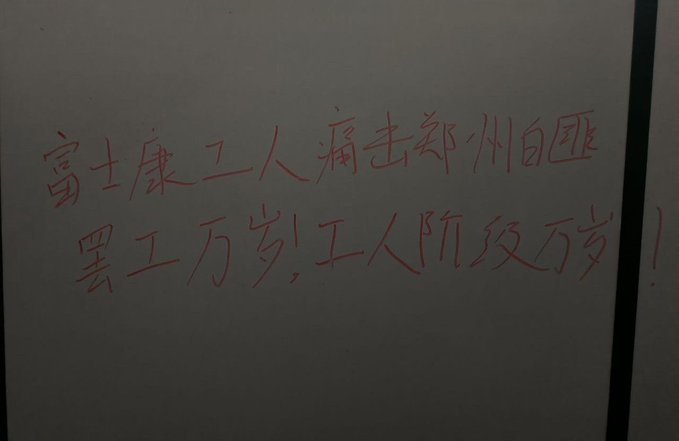 富士康工人痛击郑州白匪
罢工万岁!工人阶级万岁!